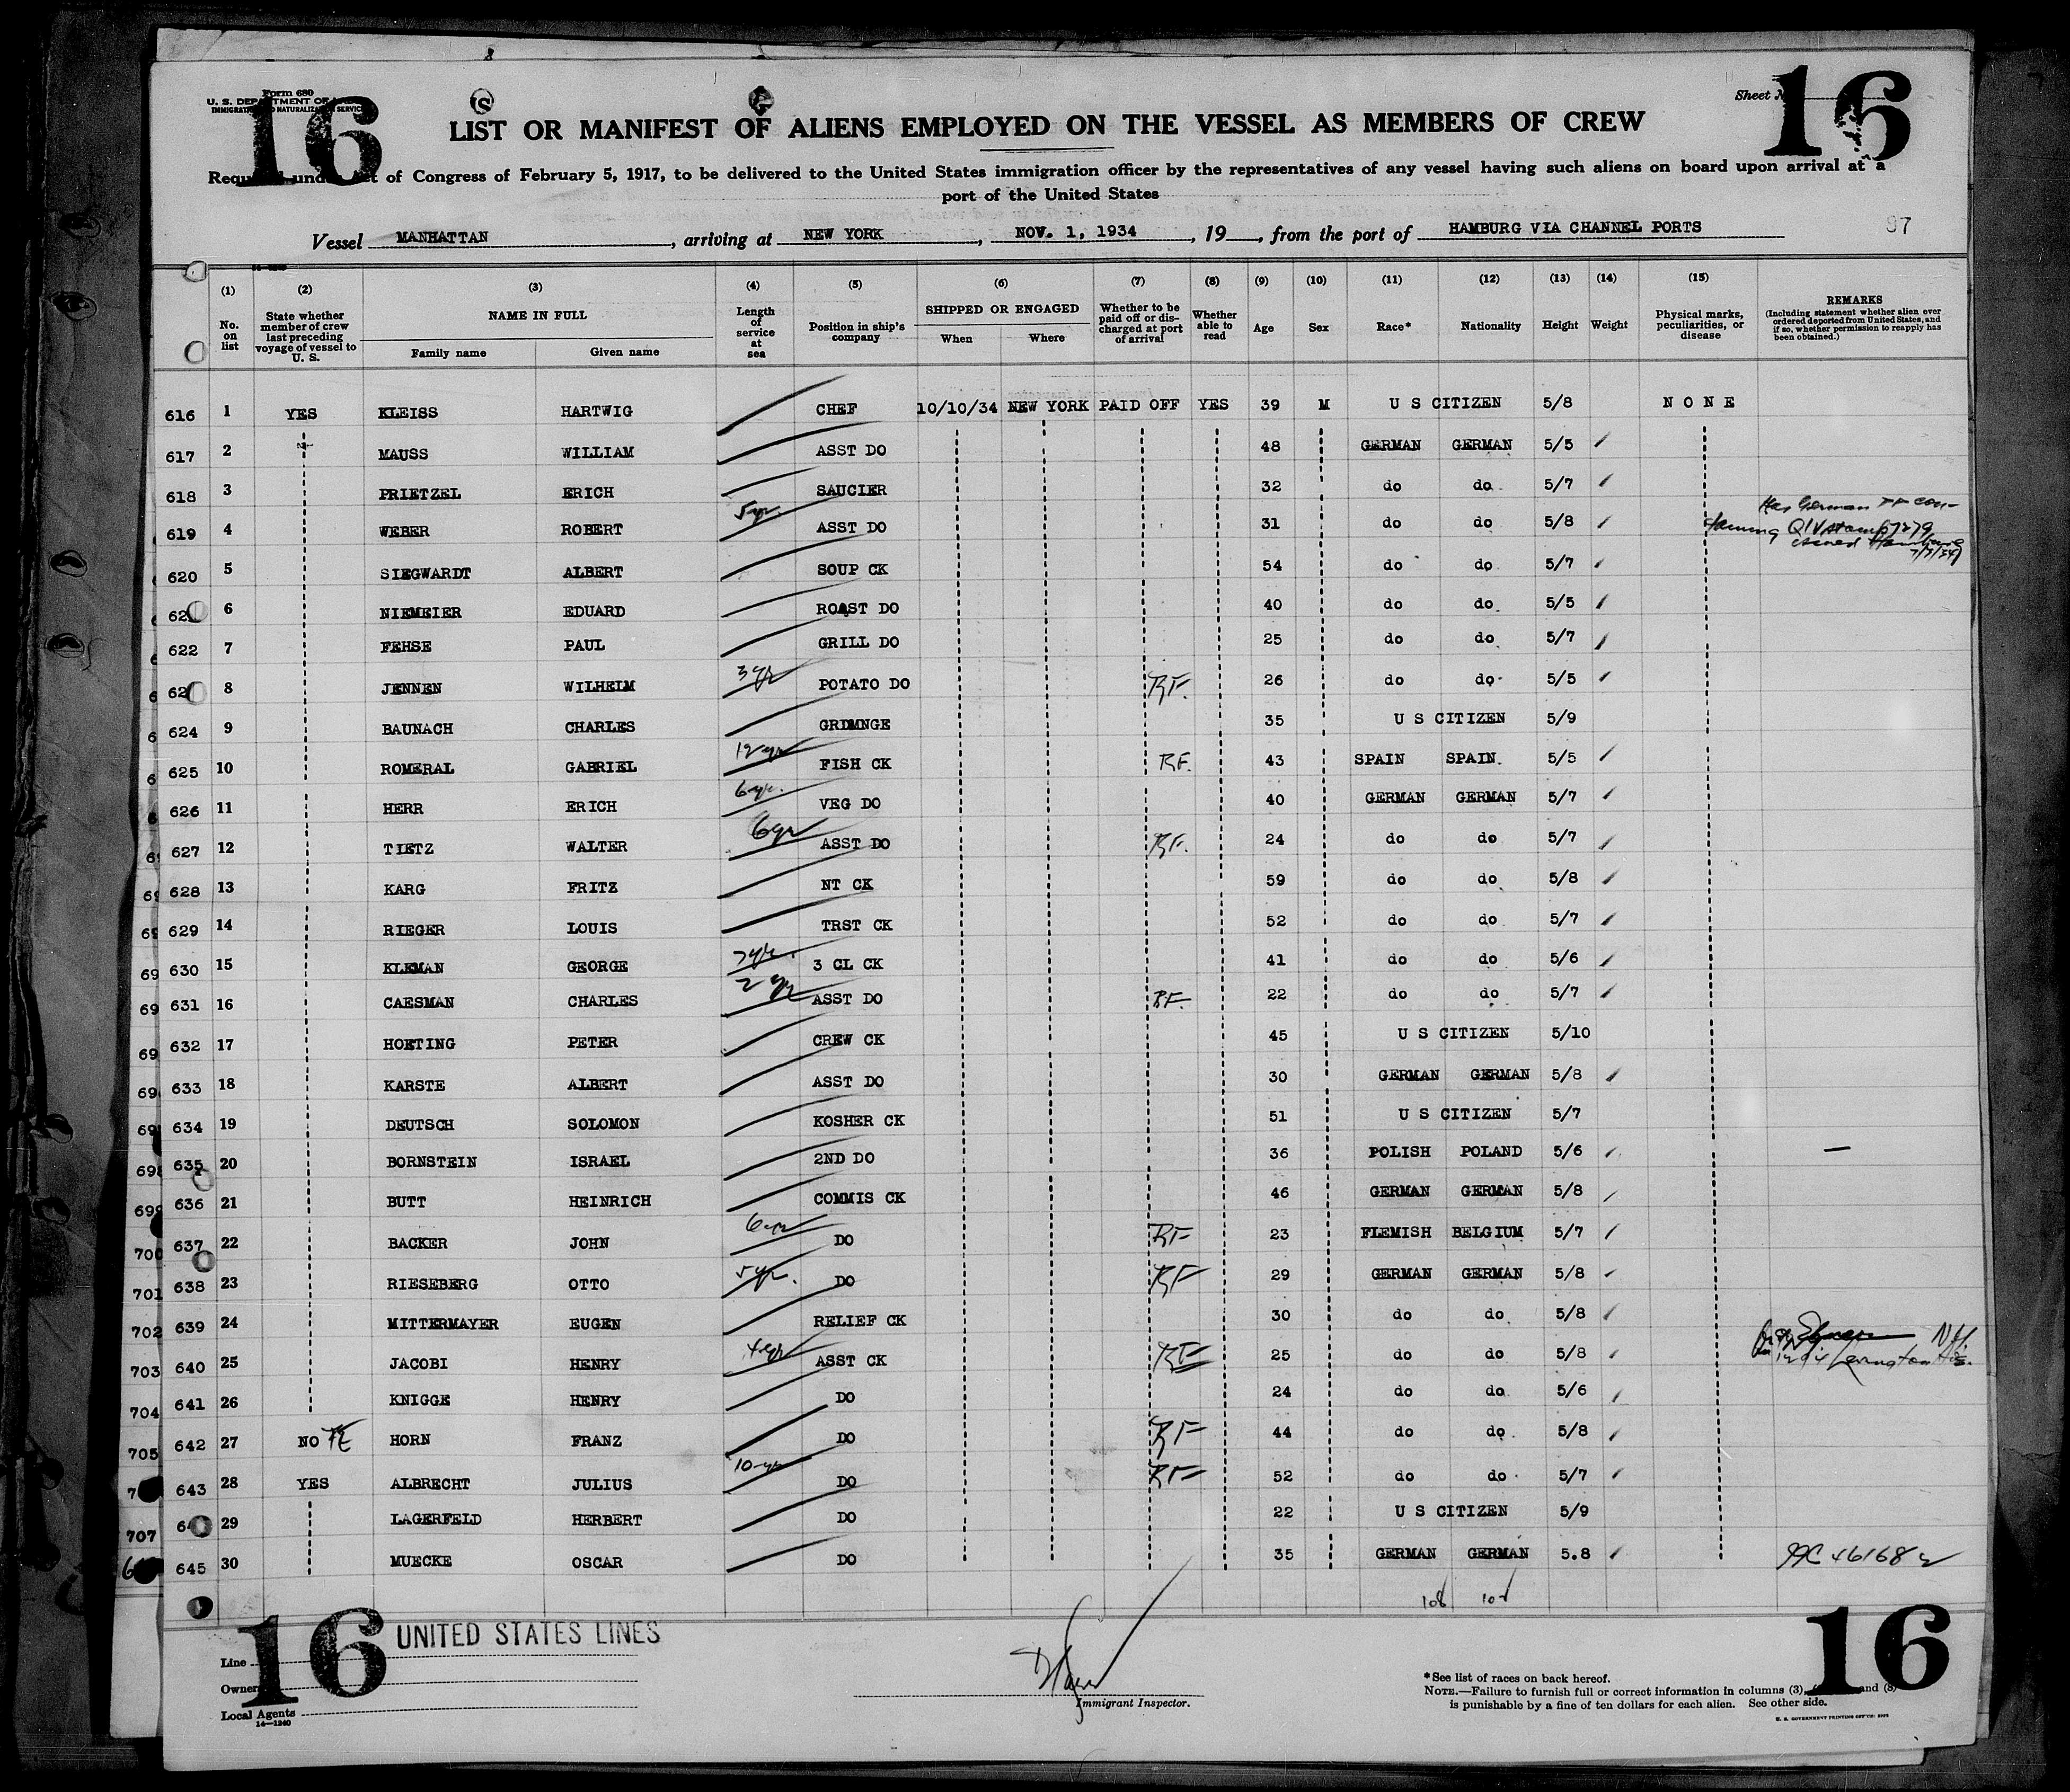 16
16
Form 680
U. S. DEPARTMENT OF
IMMIGRATION AND NATURALIZATION SERVICE
Sheet
LIST OR MANIFEST OF ALIENS EMPLOYED ON THE VESSEL AS MEMBERS OF CREW
Required under Act of Congress of February 5, 1917, to be delivered to the United States immigration officer by the representatives of any vessel having such aliens on board upon arrival at a
port of the United States
Vessel MANHATTAN, arriving at NEW YORK, NOV. 1, 1934, 19, from the port of HAMBURG VIA CHANNEL PORTS 97
(1) (2) (3) (4) (5) (6) (7) (8) (9) (10) (11) (12) (13) (14) (15)
No. on list
State whether member of crew last preceding voyage of vessel to U. S.
NAME IN FULL
Family name Given name
Length of service at sea
Position in ship's company
SHIPPED OR ENGAGED
When Where
Whether to be paid off or discharged at port of arrival
Whether able to read
Age Sex Race* Nationality Height Weight
Physical marks, peculiarities, or disease
REMARKS
(Including statement whether alien ever ordered deported from United States, and if so, whether permission to reapply has been obtained.)
616 1 YES KLEISS HARTWIG CHEF 10/10/34 NEW YORK PAID OFF YES 39 M U S CITIZEN 5/8 NONE
617 2 MAUSS WILLIAM ASST DO 48 GERMAN GERMAN 5/5
618 3 PRIETZEL ERICH SAUCIER 32 do do 5/7
619 4 WEBER ROBERT 5 yr. ASST DO 31 do do 5/8 Has German PP con-
taining QIV stamp 7279
issued Hamburg
7/7/34
620 5 SIEGWARDT ALBERT SOUP CK 54 do do 5/7
62 6 NIEMEIER EDUARD ROAST DO 40 do do 5/5
622 7 FEHSE PAUL GRILL DO 25 do do 5/7
62 8 JENNEN WILHELM 3 yr POTATO DO RF. 26 do do 5/5
624 9 BAUNACH CHARLES GRDMNGE 35 U S CITIZEN 5/9
625 10 ROMERAL GABRIEL 12 yr FISH CK RF. 43 SPAIN SPAIN. 5/5
626 11 HERR ERICH 6 yr. VEG DO 40 GERMAN GERMAN 5/7
627 12 TIETZ WALTER 6 yr ASST DO RF. 24 do do 5/7
628 13 KARG FRITZ NT CK 59 do do 5/8
629 14 RIEGER LOUIS TRST CK 52 do do 5/7
630 15 KLEMAN GEORGE 7 yr. 3 CL CK 41 do do 5/6
631 16 CAESMAN CHARLES 2 yr ASST DO RF. 22 do do 5/7
632 17 HOETING PETER CREW CK 45 U S CITIZEN 5/10
633 18 KARSTE ALBERT ASST DO 30 GERMAN GERMAN 5/8
634 19 DEUTSCH SOLOMON KOSHER CK 51 U S CITIZEN 5/7
635 20 BORNSTEIN ISRAEL 2ND DO 36 POLISH POLAND 5/6 —
636 21 BUTT HEINRICH COMMIS CK 46 GERMAN GERMAN 5/8
637 22 BACKER JOHN 6 yr DO RF 23 FLEMISH BELGIUM 5/7
638 23 RIESEBERG OTTO 5 yr. DO RF 29 GERMAN GERMAN 5/8
639 24 MITTERMAYER EUGEN RELIEF CK 30 do do 5/8
640 25 JACOBI HENRY 4 yr ASST CK RF 25 do do 5/8 Lexington
641 26 KNIGGE HENRY DO 24 do do 5/6
642 27 NO HORN FRANZ DO RF 44 do do 5/8
643 28 YES ALBRECHT JULIUS 10 yr DO RF 52 do do 5/7
64 29 LAGERFELD HERBERT DO 22 U S CITIZEN 5/9
645 30 MUECKE OSCAR DO 35 GERMAN GERMAN 5.8 46168
700
701
702
703
704
705
707
16
UNITED STATES LINES
Line
Owner
Local Agents
14—1240
Immigrant Inspector.
*See list of races on back hereof.
NOTE.—Failure to furnish full or correct information in columns (3), and (8)
is punishable by a fine of ten dollars for each alien. See other side.
U. S. GOVERNMENT PRINTING OFFICE
16